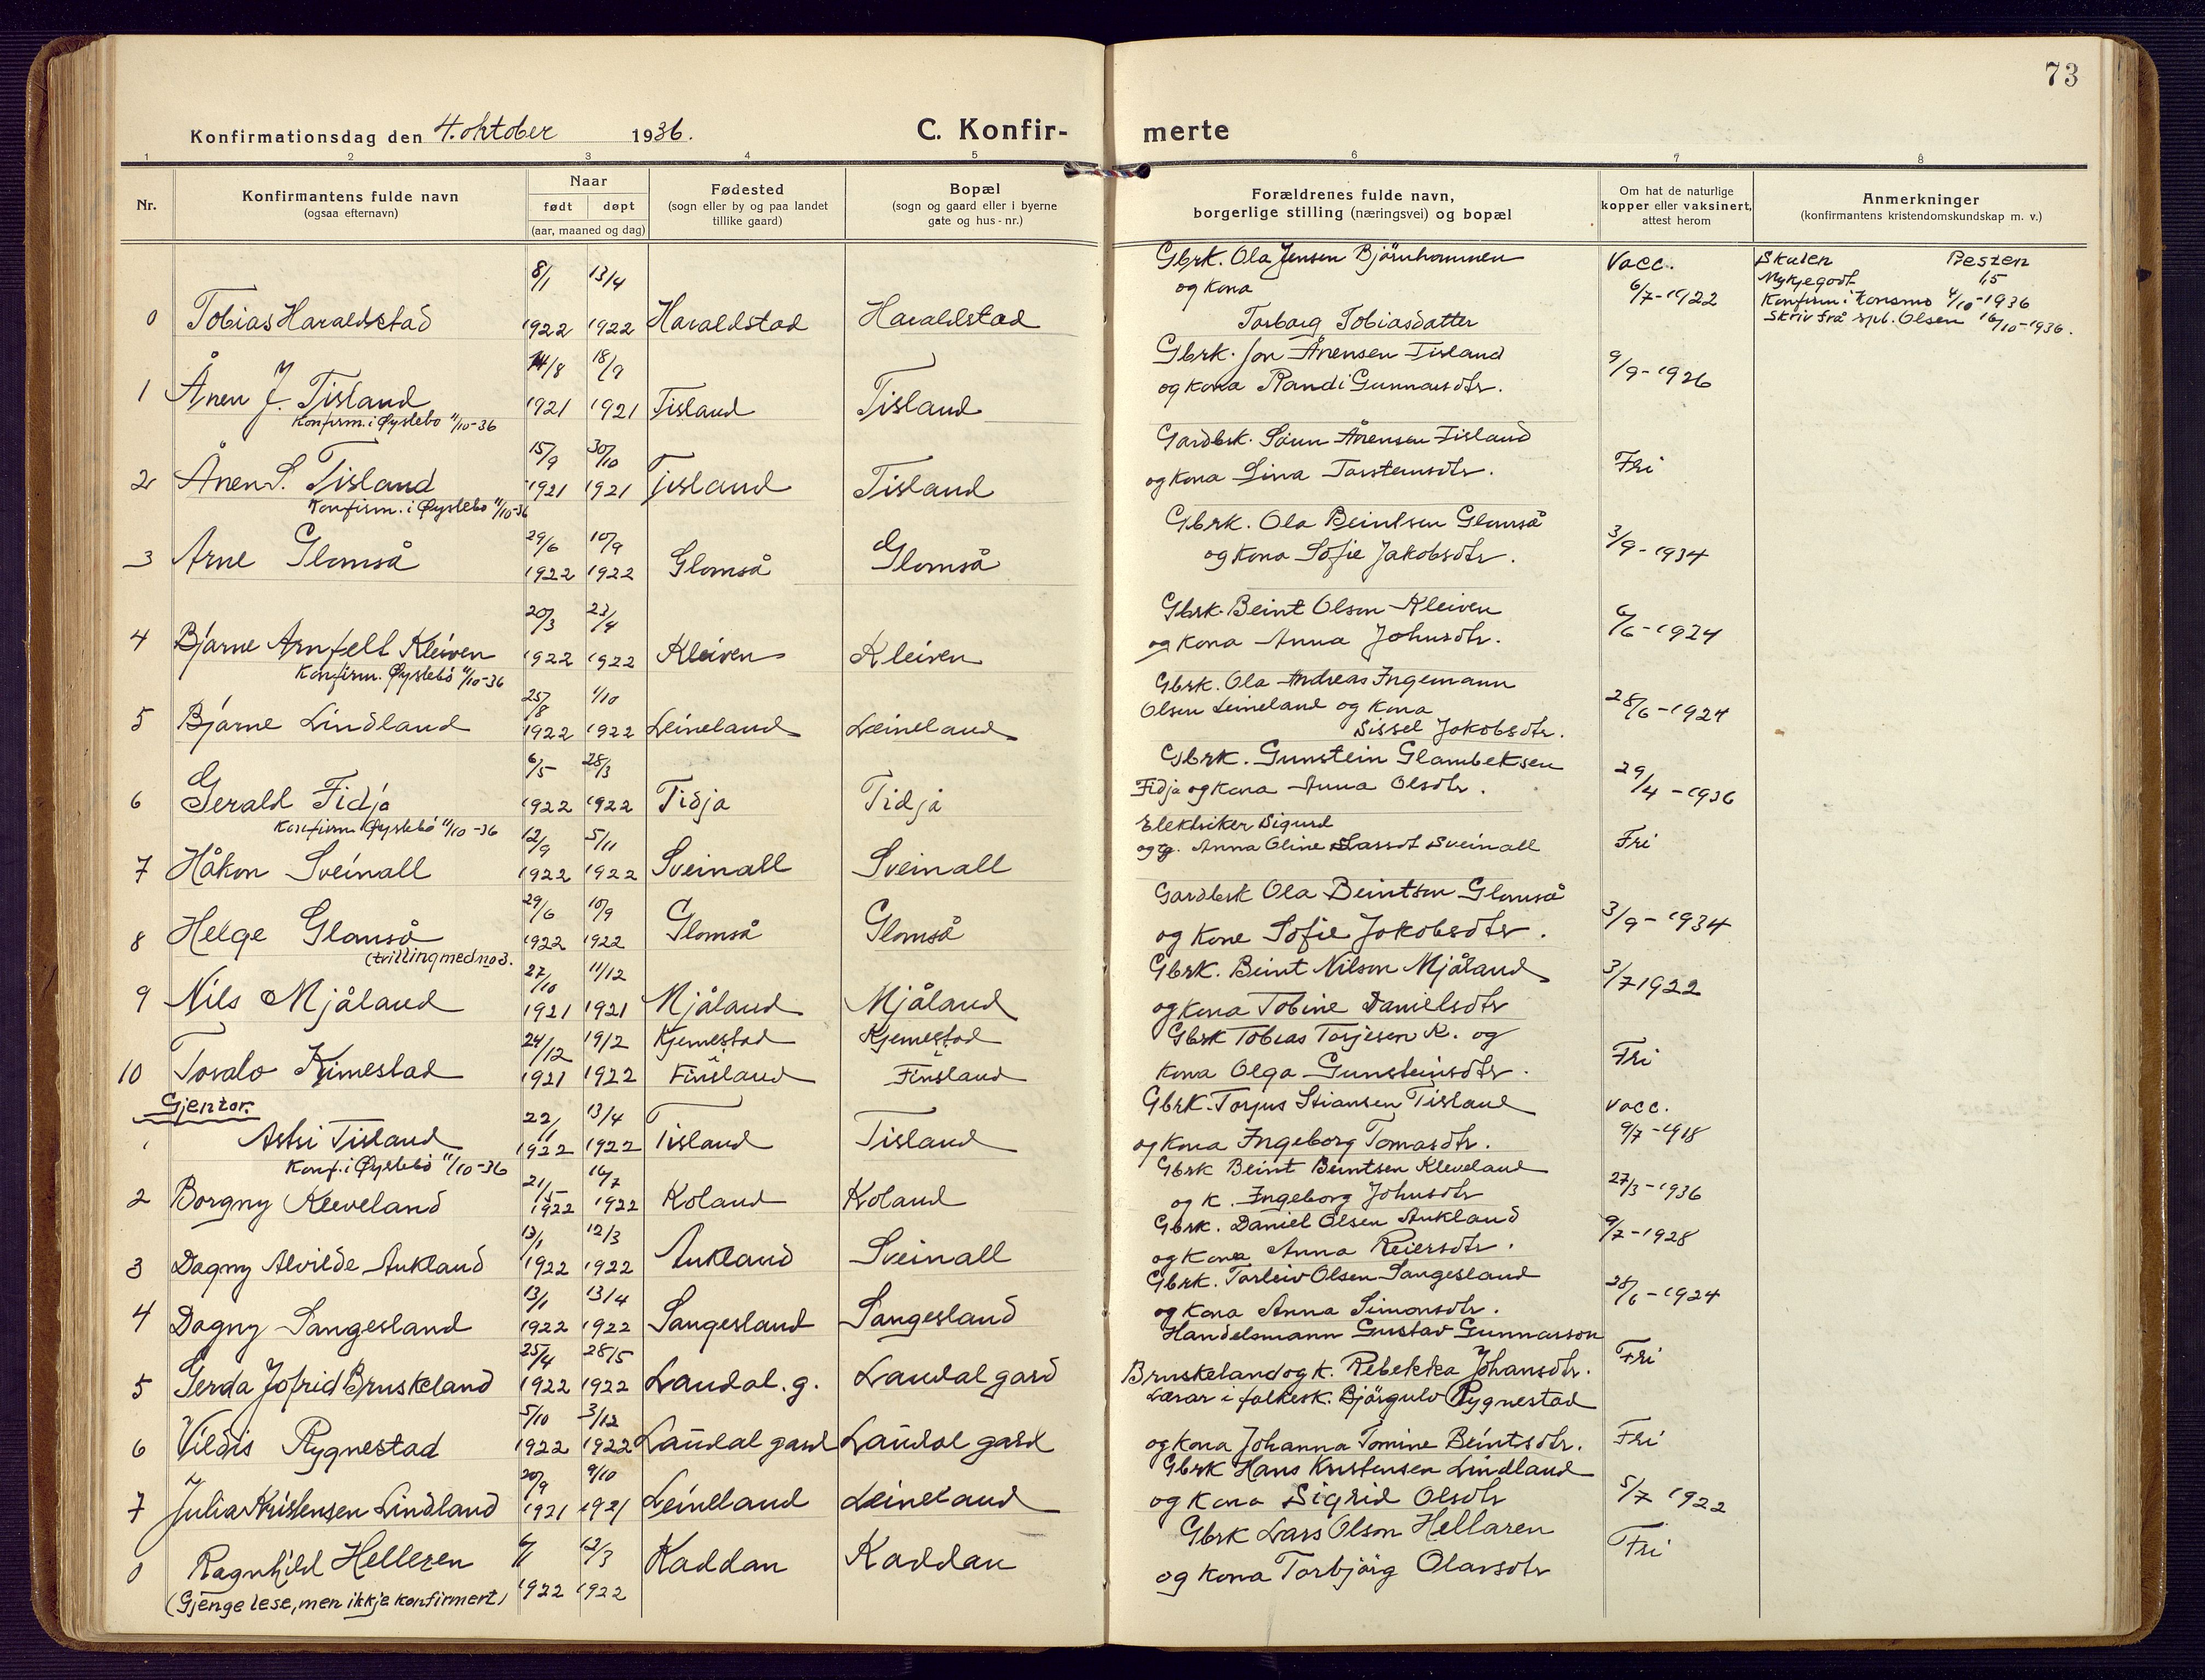 73
Konfirmationsdag den 4. oktober 1936.
C. Konfir-
merte
1 2 3 4 5 6 7 8
Nr.
Konfirmantens fulde navn
(ogsaa efternavn)
Naar
født døpt
(aar, maaned og dag)
Fødested
(sogn eller by og paa landet
tillike gaard)
Bopæl
(sogn og gaard eller i byerne
gate og hus-nr.)
Forældrenes fulde navn,
borgerlige stilling (næringsvei) og bopæl
Om hat de naturlige
kopper eller vaksinert,
attest herom
Anmerkninger
(konfirmantens kristendomskundskap m. v.)
8/1 13/4 Gbrk. Ola Jensen Bjårnhommen Vacc. Skulen Presten
og kona 6/7-1922 Mykjegodt 1,5
0 Tobias Haraldstad 1922 1922 Haraldstad Haraldstad Torborg Tobiasdatter Konfirm. i Konsmo 4/10-1936
Skriv frå spr. Olsen 16/10-1936.
14/8 18/9 Gbrk. Jon Ånensen Tisland 9/9-1926
1 Ånen J. Tisland 1921 1921 Tisland Tisland og kona Randi Gunnarsdtr.
Konfirm. i Øyslebø 11/10-36
15/9 30/10 Gardbrk. Sørn Ånensen Tisland
2 Ånen S. Tisland 1921 1921 Tisland Tisland og kona Lina Torsteinsdtr. Fri
Konfirm. i Øyslebø 11/10-36
29/6 10/9 Gbrk. Ola Beintsen Glomså 3/9-1934
3 Arne Glomså 1922 1922 Glomså Glomså og kona Sofie Jakobsdtr.
20/3 23/4 Gbrk. Beint Olson Kleiven 6/6-1924
4 Bjarne Arnfelt Kleiven 1922 1922 Kleiven Kleiven og kona Anna Johnsdtr.
Konfirm. Øyslebø 11/10-36
25/8 1/10 Gbrk. Ola Andreas Ingemann
5 Bjarne Lindland 1922 1922 Leineland Leineland Olsen Leineland og kona 28/6-1924
Sissel Jakobsdtr.
6/5 28/3 Gbrk. Gunstein Glambeksen
6 Gerald Fidja 1922 1922 Fidja Fidja Fidja og kona Anna Olsdtr. 29/4-1936
Konfirm. Øyslebø 11/10-36
12/9 5/11 Elektriker Sigurd
7 Håkon Sveinall 1922 1922 Sveinall Sveinall og Anna Oline Lassdt Sveinall Fri
29/6 10/9 Gardbrk Ola Beintsen Glomså
8 Helge Glomså 1922 1922 Glomså Glomså og kone Sofie Jokobsdtr. 3/9-1934
(tvilling med no 3.
27/10 11/12 Gbrk. Beint Nilson Mjåland
9 Nils Mjåland 1921 1921 Mjåland Mjåland og kona Tobine Danielsdtr 3/7 1922
24/12 19/2 Kjemestad Kjemestad Gbrk Tobias Torjesen K. og
10 Toralo Kimestad 1921 1922 i Finsland i Finsland kona Olga Gunsteinsdtr. Fri
Gjentor.
22/1 13/4 Gbrk. Torjus Stiansen Tisland Vacc.
1 Astri Tisland 1922 1922 Tisland Tisland og kona Ingeborg Tomasdtr. 9/7-1918
Konf. i Øyslebø 11/10-36
21/5 16/7 Gbrk Beint Beintsen Kleveland
2 Borgny Kleveland 1922 1922 Koland Koland og k. Ingeborg Johnsdtr 27/3-1936
13/1 12/3 Gbrk. Daniel Olsen Aukland
3 Dagny Alvilde Aukland 1922 1922 Aukland Sveinall og kona Anna Reiersdtr. 9/7-1928
13/1 13/4 Gbrk. Torleiv Olsen Sangesland
4 Dagny Sangesland 1922 1922 Sangesland Sangesland og kona Anna Simonsdtr. 28/6-1924
25/4 28/5 Handelsmann Gustav Gunnarson
5 Gerda Jofrid Bruskeland 1922 1922 Laudal. g. Laudal gard Bruskeland og k. Rebekka Johansdtr. Fri
5/10 3/12 Lærar i folkesk. Bjørgulv Rygnestad
6 Vildis Rygnestad 1922 1922 Laudal gard Laudal gard og kona Johanna Tomine Beintsdtr. Fri
20/9 9/10 Gbrk Hans Kristensen Lindland
7 Julia Kristensen Lindland 1921 1921 Leineland Leineland og kona Sigrid Olsdtr 5/7 1922
6/1 12/3 Gbrk Lars Olson Hellaren
0 Ragnhild Helleren 1922 1922 Kaddan Kaddan og kona Torbjørg Olavsdtr Fri
(Gjenge lese, men ikkje konfirmert)